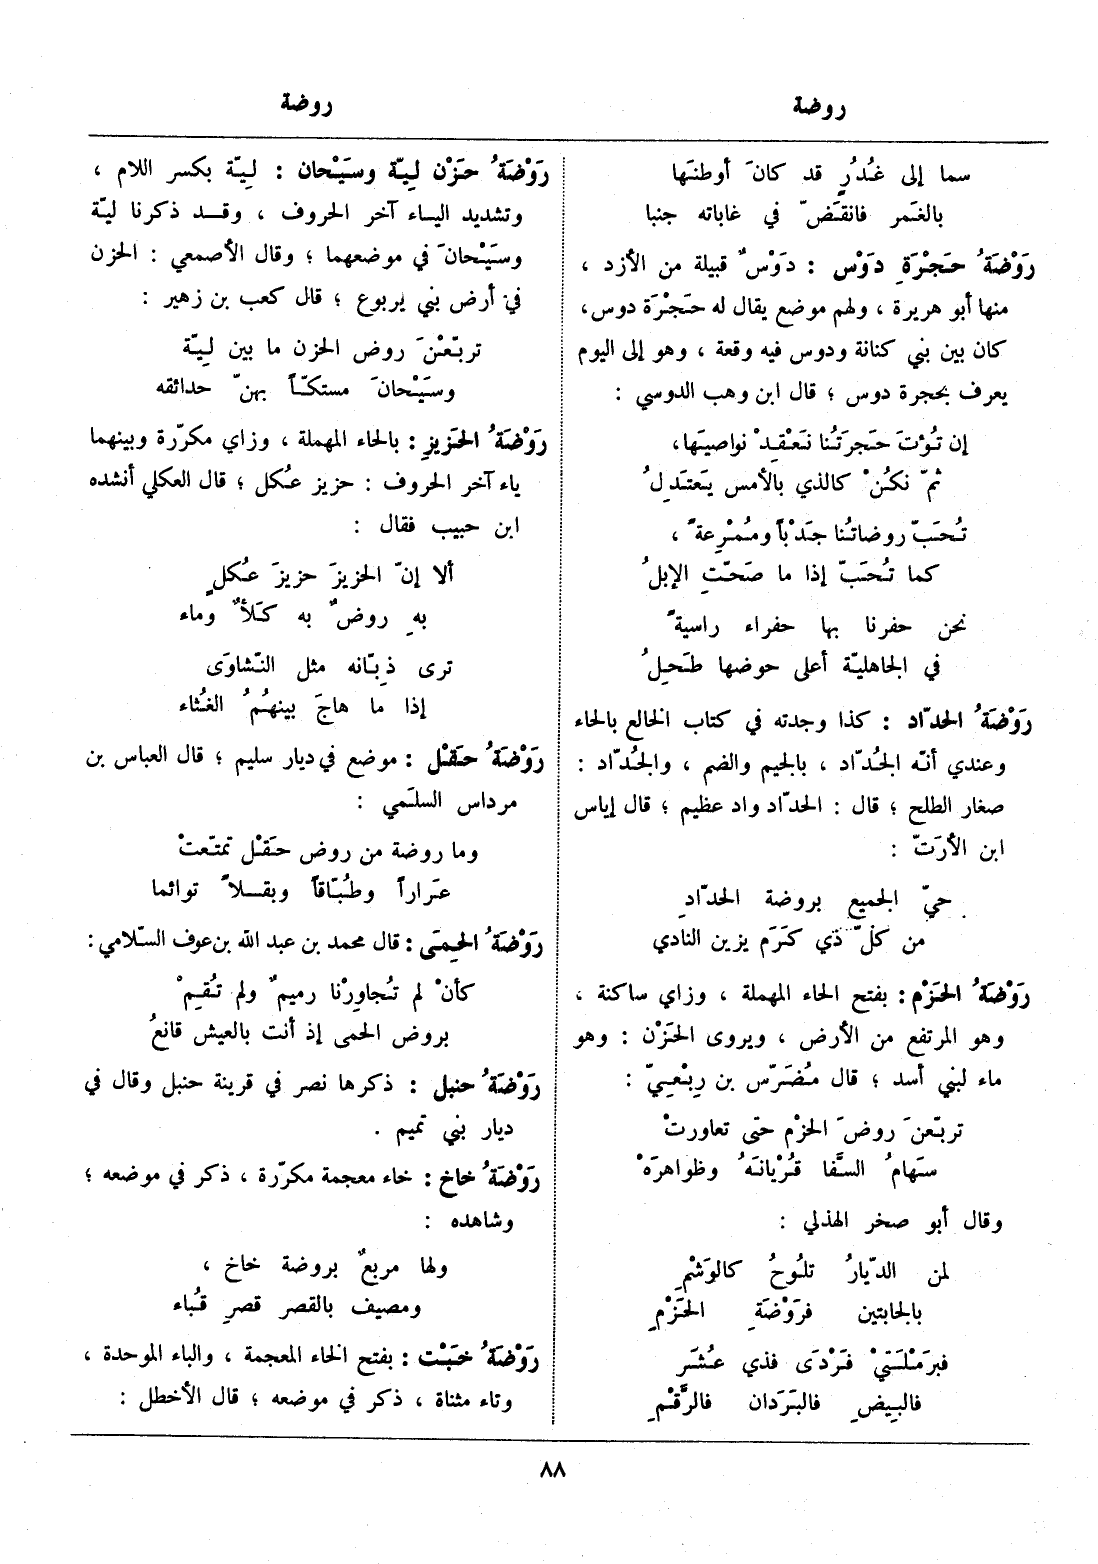 روضة
روضة
سما إلى غُدُرٍ قد كانَ أوطنَها
بالغَمر فانقَضّ في غاباته جنبا
رَوْضَةُ حَجْرَةِ دَوْس : دَوْسٌ قبيلة من الأزد ،
منها أبو هريرة ، ولهم موضع يقال له حَجْرَة دوس ،
كان بين بني كنانة ودوس فيه وقعة ، وهو إلى اليوم
يعرف بحجرة دوس ؛ قال ابن وهب الدوسي :
إن تُؤتَ حَجرَتُنا نَعْقِدْ نواصيَها ،
ثمّ نكُنْ كالذي بالأمس يَعتَدِلُ
تُحَبّ روضاتُنا جَدْباً ومُمْرِعةً ،
كما تُحَبّ إذا ما صَحّتِ الإبلُ
نحن حفرنا بها حفراء راسيةً
في الجاهليّة أعلى حوضها طَحِلُ
رَوْضَةُ الحدّاد : كذا وجدته في كتاب الخالع بالحاء
وعندي أنّه الجُدّاد ، بالجيم والضم ، والجُدّاد :
صغار الطلح ؛ قال : الحدّاد واد عظيم ؛ قال إياس
ابن الأرَتّ :
حيّ الجميع بروضة الحدّادِ
من كلّ ذي كَرَم يزين النادي
رَوْضَةُ الحَزْم : بفتح الحاء المهملة ، وزاي ساكنة ،
وهو المرتفع من الأرض ، ويروى الحَزْن : وهو
ماء لبني أسد ؛ قال مُضَرّس بن رِبْعِيّ :
تربّعنَ روضَ الحَزْم حتى تعاورتْ
سَهامُ السَّفا قُرْيانَهُ وظواهرَهْ
وقال أبو صخر الهذلي :
لمن الدّيارُ تلُوحُ كالوَشْمِ
بالجابتين فرَوْضَةِ الحَزْمِ
فبرَمْلَتَيْ فَرْدَى فذي عُشَر
فالبِيضِ فالبَرَدان فالرَّقْمِ
رَوْضَةُ حَزْن لِيّة وسَيْحان : لِيّة بكسر اللام ،
وتشديد الياء آخر الحروف ، وقد ذكرنا ليّة
وسَيْحانَ في موضعهما ؛ وقال الأصمعي : الحزن
في أرض بني يربوع ؛ قال كعب بن زهير :
تربّعْنَ روض الحزن ما بين لِيّة
وسَيْحانَ مستكّاً بهنّ حدائقه
رَوْضَةُ الحَزيزِ : بالحاء المهملة ، وزاي مكرّرة وبينهما
ياء آخر الحروف : حزيز عُكل ؛ قال العكلي أنشده
ابن حبيب فقال :
ألا إنّ الحزيزَ حزيزَ عُكلٍ
بهِ روضٌ به كَلَأٌ وماء
ترى ذِبّانه مثل النّشاوَى
إذا ما هاجَ بينهُمُ الغُثاء
رَوْضَةُ حَقْل : موضع في ديار سليم ؛ قال العباس بن
مرداس السلَمي :
وما روضة من روض حَقْل تمتّعتْ
عَراراً وطُبّاقاً وبقلاً توائما
رَوْضَةُ الحِمَى : قال محمد بن عبد الله بن عوف السّلامي :
كأنْ لم تُجاوِرْنا رميمٌ ولم تُقِمْ
بروض الحمى إذ أنت بالعيش قانعُ
رَوْضَةُ حنبل : ذكرها نصر في قرينة حنبل وقال في
ديار بني تميم .
رَوْضَةُ خاخ : خاء معجمة مكرّرة ، ذكر في موضعه ؛
وشاهده :
ولها مربعٌ بروضة خاخ ،
ومصيف بالقصر قصرِ قُباء
رَوْضَةُ خَبْت : بفتح الخاء المعجمة ، والباء الموحدة ،
وتاء مثناة ، ذكر في موضعه ؛ قال الأخطل :
٨٨